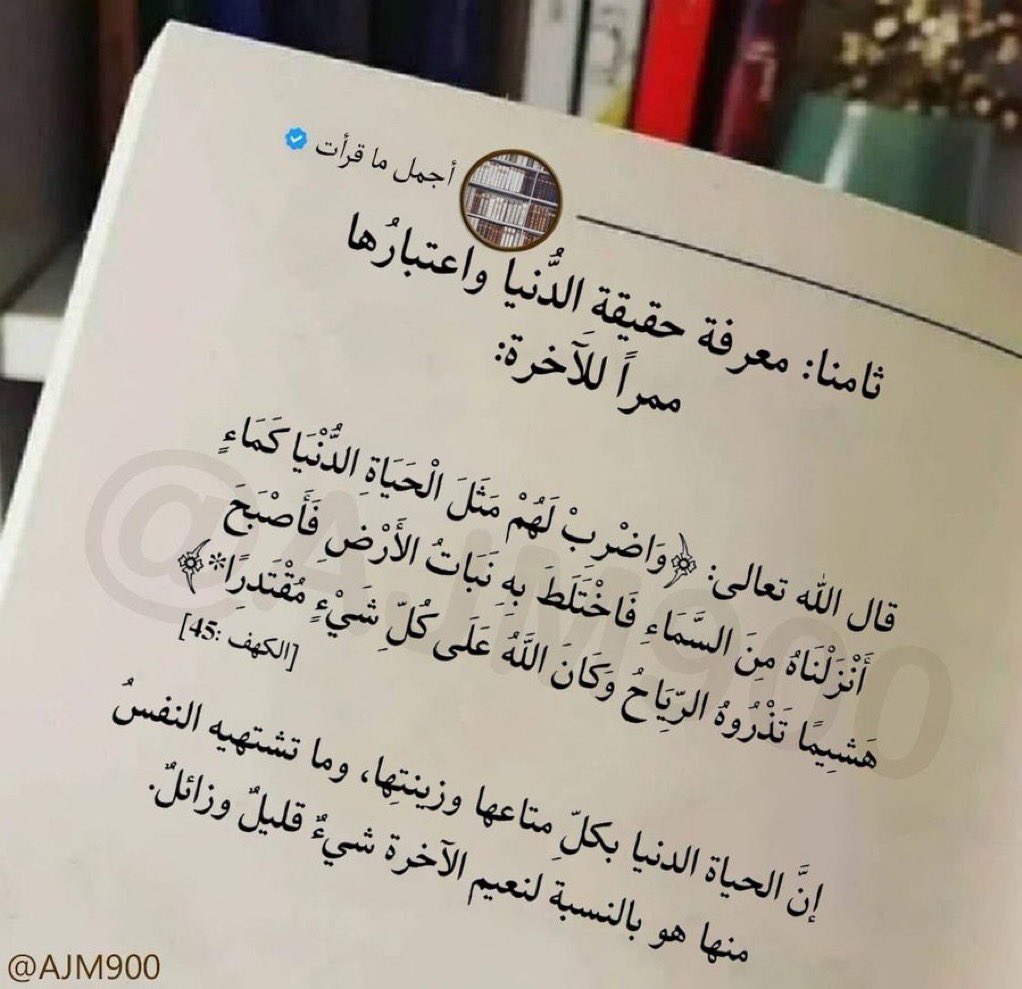 أجمل ما قرأت
ثامنا: معرفة حقيقة الدُّنيا واعتبارُها
ممراً للآخرة:
قال الله تعالى: ﴿وَاضْرِبْ لَهُمْ مَثَلَ الْحَيَاةِ الدُّنْيَا كَمَاءٍ
أَنْزَلْنَاهُ مِنَ السَّمَاءِ فَاخْتَلَطَ بِهِ نَبَاتُ الأَرْضِ فَأَصْبَحَ
هَشِيمًا تَذْرُوهُ الرِّيَاحُ وَكَانَ اللَّهُ عَلَى كُلِّ شَيْءٍ مُقْتَدِرًا*﴾
[الكهف :45]
إنَّ الحياة الدنيا بكلّ متاعها وزينتِها، وما تشتهيه النفسُ
منها هو بالنسبة لنعيم الآخرة شيءٌ قليلٌ وزائلٌ.
@AJM900
@AJM900